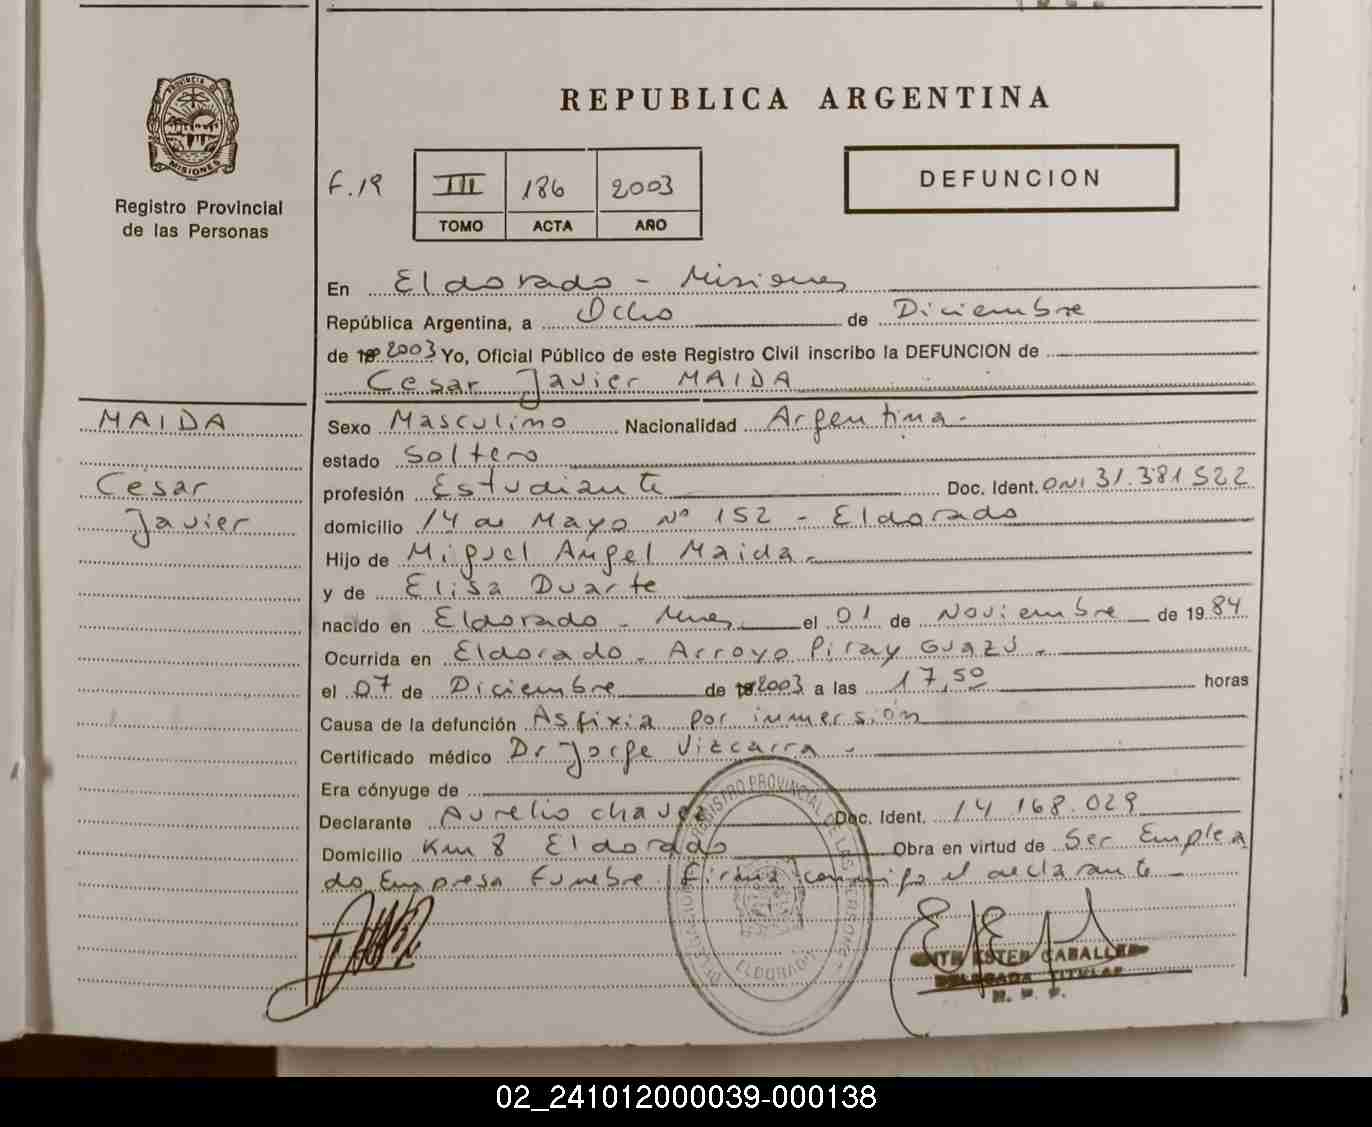 REPUBLICA ARGENTINA
PROVINCIA DE
MISIONES
Registro Provincial
de las Personas
F.19
III 186 2003
TOMO ACTA AÑO
DEFUNCION
En Eldorado - Misiones
República Argentina, a Ocho de Diciembre
de 2003 Yo, Oficial Público de este Registro Civil inscribo la DEFUNCION de
Cesar Javier MAIDA
MAIDA
Cesar
Javier
Sexo Masculino Nacionalidad Argentina.
estado Soltero
profesión Estudiante Doc. Ident. DNI 31.381522
domicilio 14 de Mayo Nº 152 - Eldorado
Hijo de Miguel Angel Maida.
y de Elisa Duarte
nacido en Eldorado - Mnes el 01 de Noviembre de 1984
Ocurrida en Eldorado - Arroyo Piray Guazú -
el 07 de Diciembre de 2003 a las 17,50 horas
Causa de la defunción Asfixia por inmersión
Certificado médico Dr Jorge Vizcarra -
Era cónyuge de
Declarante Aurelio Chavez Doc. Ident. 14.168.029
Domicilio Km 8 Eldorado Obra en virtud de Ser Emplea
do Empresa Funebre. Firma conmigo el declarante -
REGISTRO PROVINCIAL DE LAS PERSONAS
DELEGACION
ELDORADO
ESTER CABALLERO
DELEGADA TITULAR
02_241012000039-000138